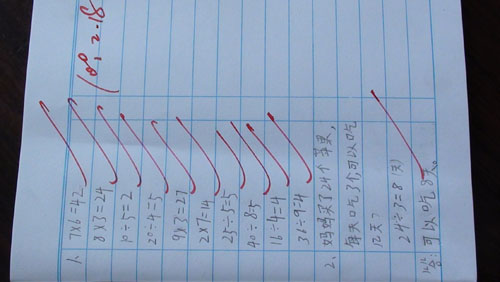 100 2.18
1. 7×6=42
8×3=24
10÷5=2
20÷4=5
9×3=27
2×7=14
25÷5=5
40÷8=5
16÷4=4
36÷9=4
2、妈妈买了24个苹果,
每天吃3个,可以吃
几天?
24÷3=8(天)
答:可以吃8天。